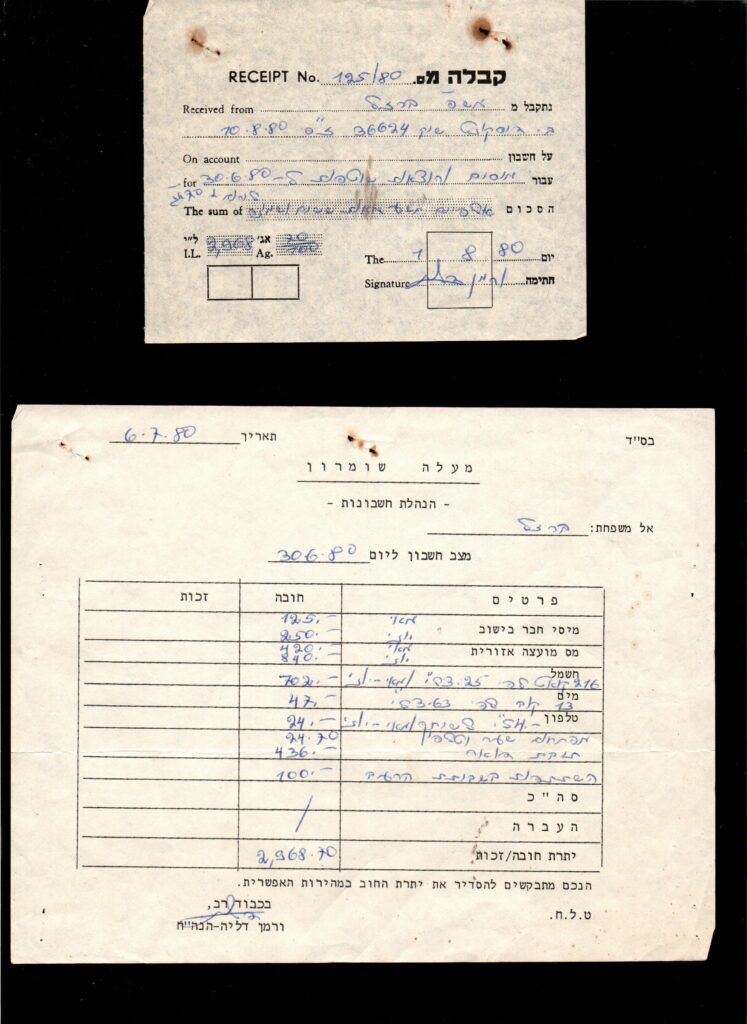 קבלה מס. 125/80 RECEIPT No.
נתקבל מ משפ' ברזל Received from
ב. דיסקונט שיק 36624 ז"פ 10.8.80
על חשבון On account
עבור מיסים והוצאות שוטפות ל-30.6.80 for
הסכום אלפיים תשע מאות ששים ושמונה The sum of
ל"י 2,968 אג' 70/100
I.L. Ag.
יום 1 8 80 The
חתימה Signature
בס"ד
תאריך 6.7.80
מעלה שומרון
- הנהלת חשבונות -
אל משפחת: ברזל
מצב חשבון ליום 30.6.80
פרטים חובה זכות
מאי 125.-
מיסי חבר בישוב יוני 250.-
מס מועצה אזורית מאי 420.-
יוני 840.-
חשמל
216 קוואט לפי 3.25 ל"י מאי-יוני 702.-
מים
13 קוב לפי 3.63 ל"י 47.-
טלפון ל"י לשיחה מאי-יוני 24.-
מפתחות שער 24.70
תיבת דואר 436.-
השתתפות בעבודות 100.-
סה"כ
העברה
יתרת חובה/זכות 2,968.70
הנכם מתבקשים להסדיר את יתרת החוב במהירות האפשרית.
ט.ל.ח.
בכבוד רב,
ורמן דליה-הנה"ח